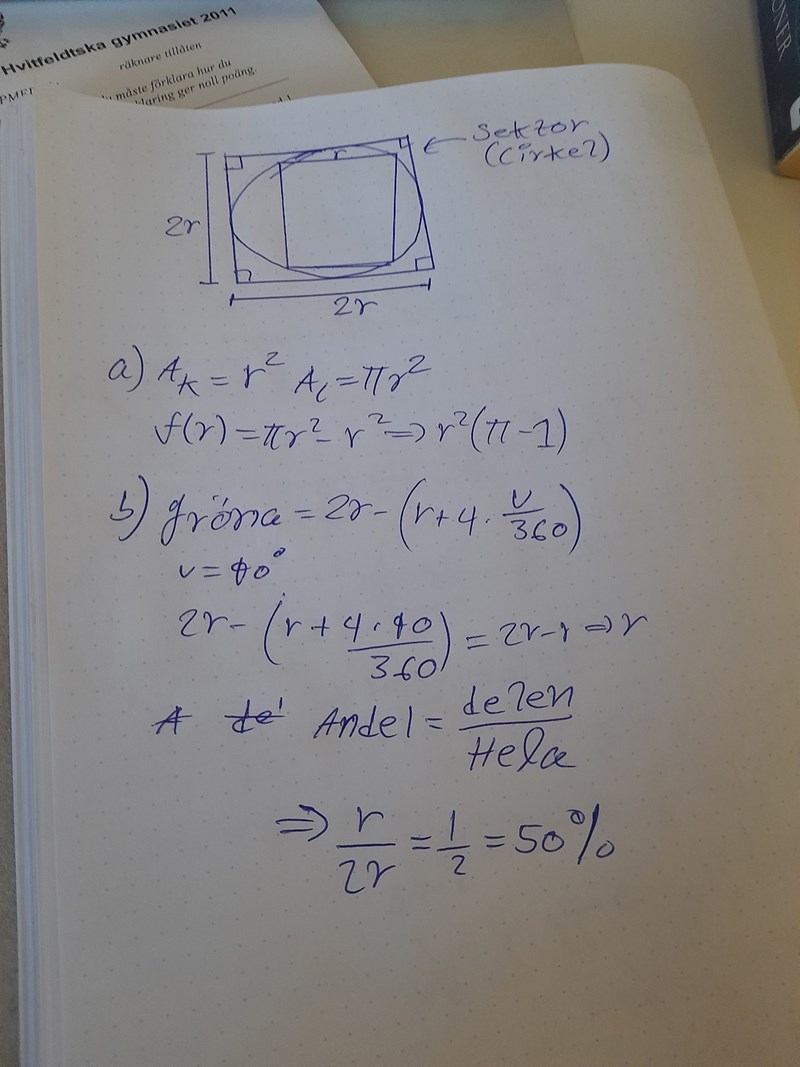 Hvitfeldtska gymnasiet 2011
räknare tillåten
måste förklara hur du
ger noll poäng.
Sektor
(Cirkel)
r
2r
2r
a) A_k = r² A_c = πr²
f(r) = πr² - r² => r²(π-1)
b) gröna = 2r - (r + 4 · v/360)
v = 90°
2r - (r + 4·90/360) = 2r - r => r
A de Andel = delen/Hela
=> r/2r = 1/2 = 50%